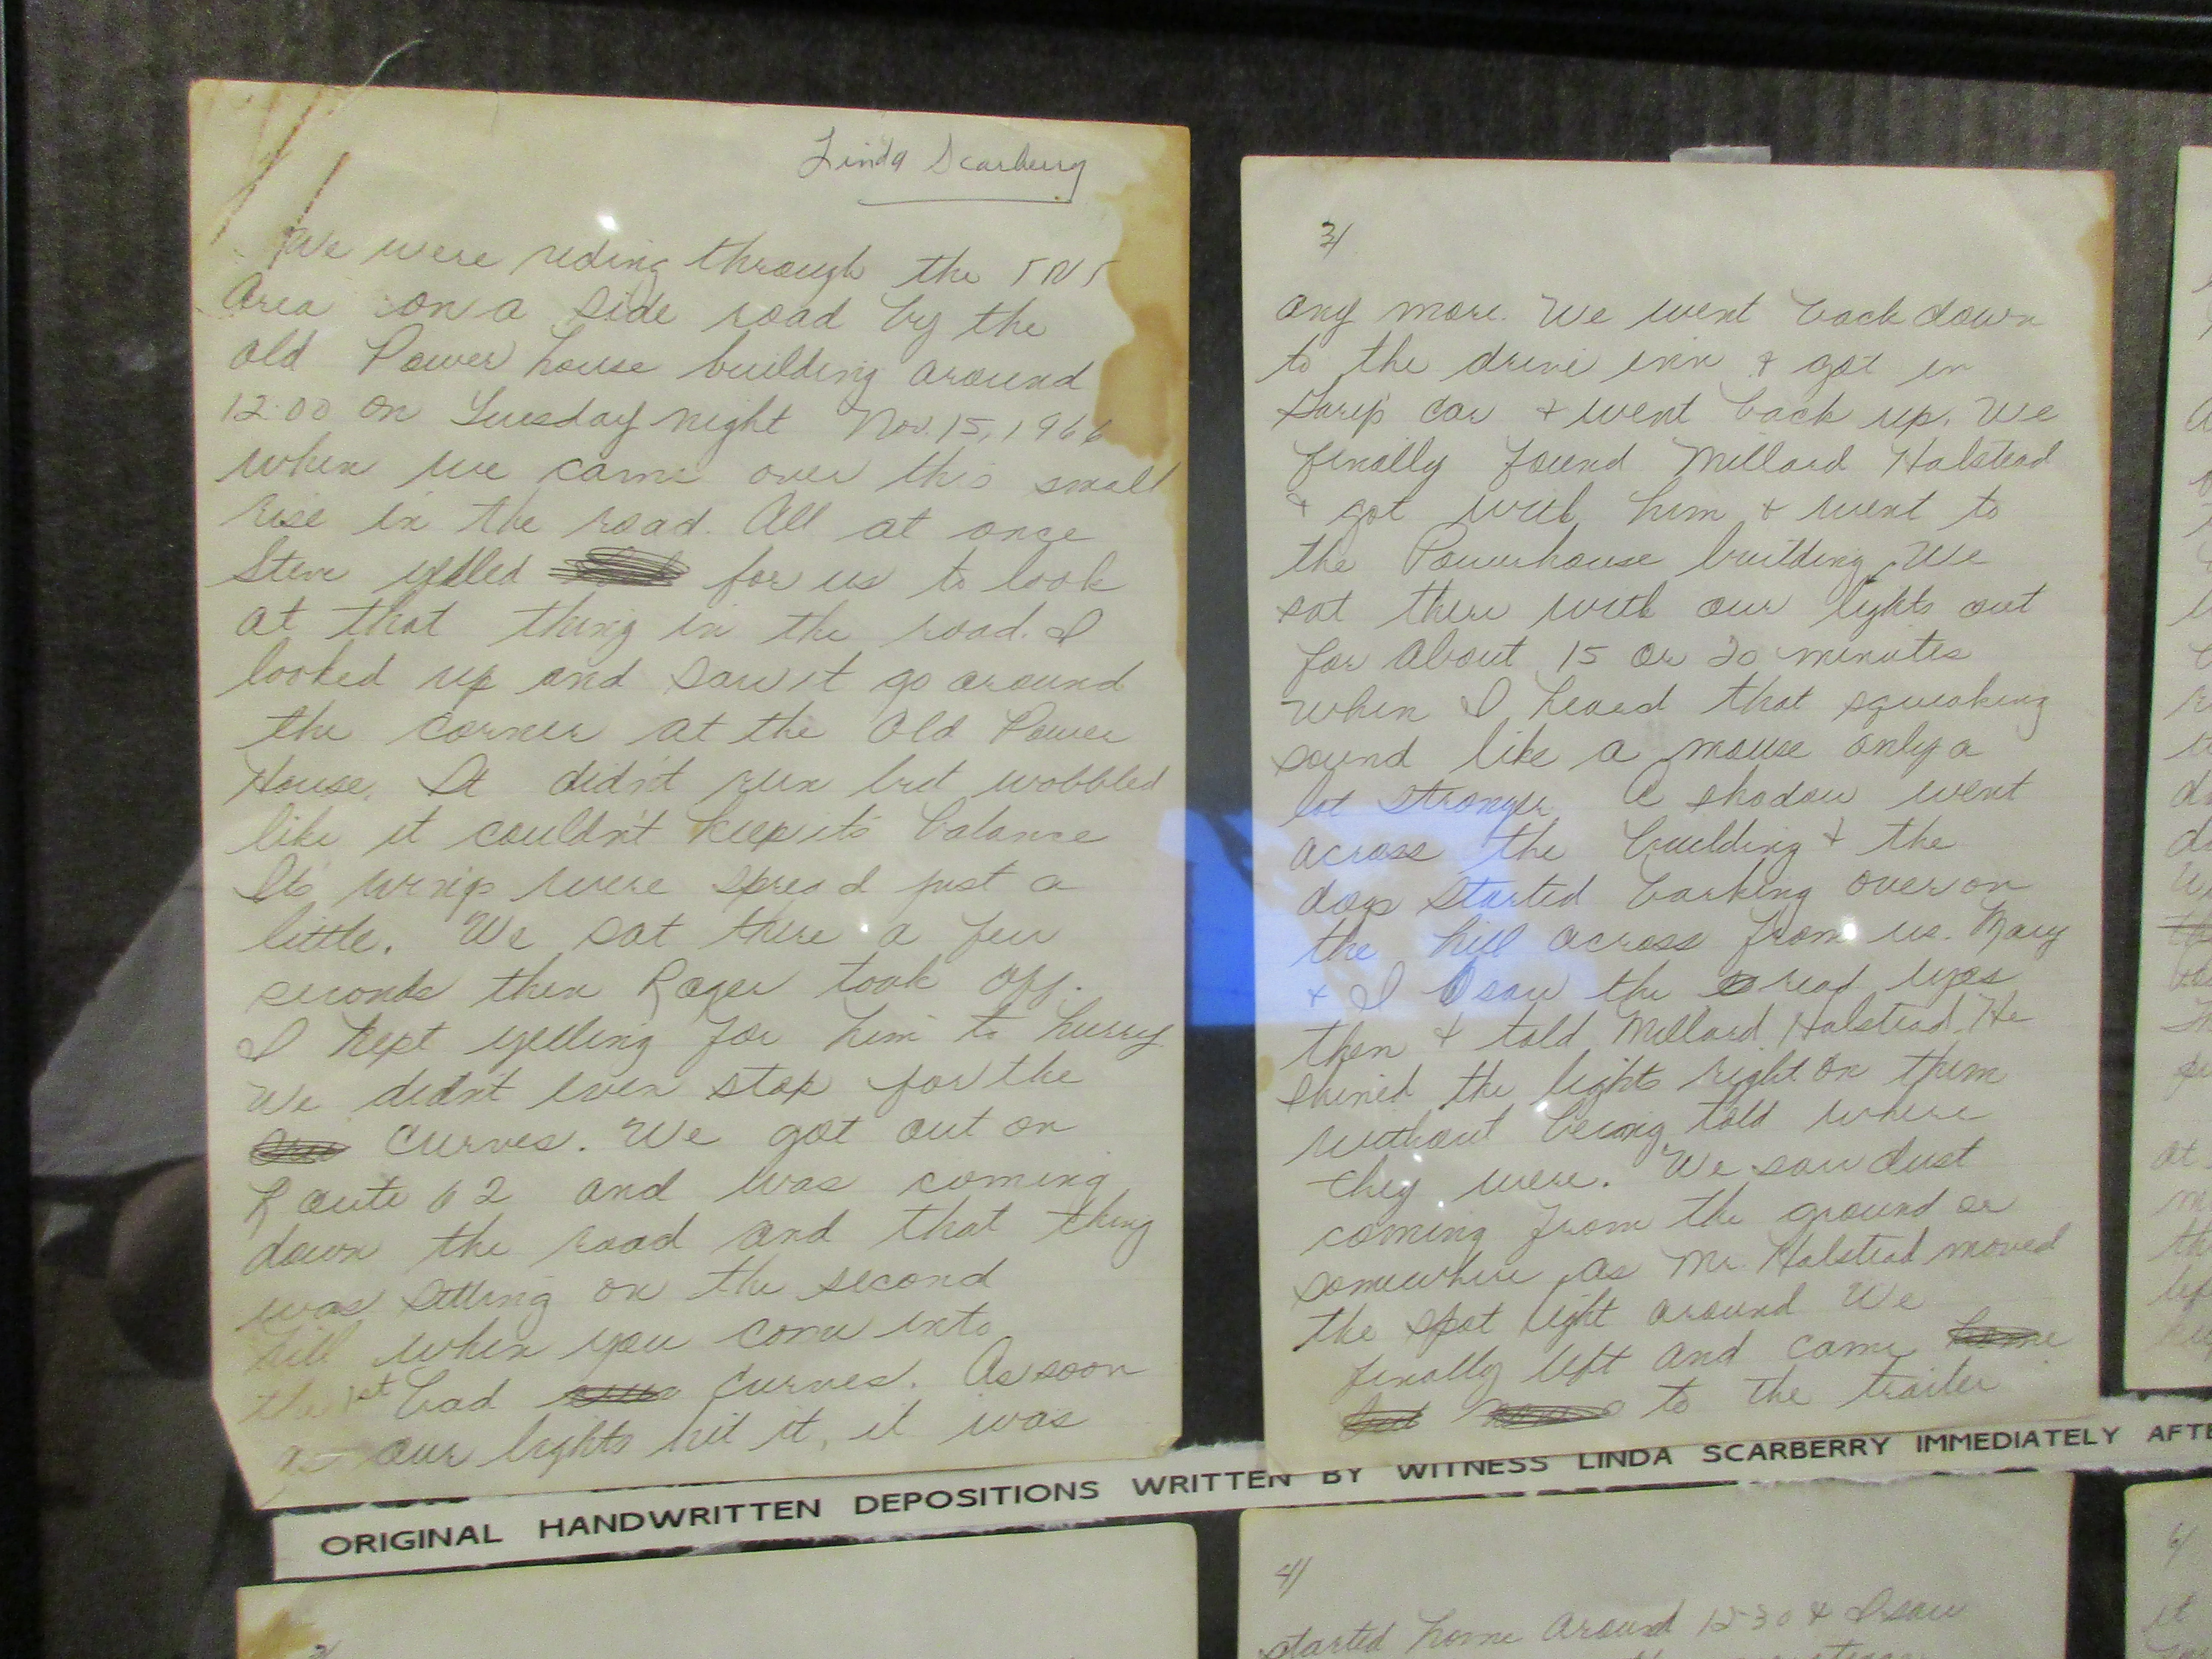 Linda Scarberry
We were riding through the TNT
Area on a side road by the
old Power house building around
12:00 on Tuesday night Nov. 15, 1966
when we came over this small
rise in the road. All at once
Steve yelled for us to look
at that thing in the road. I
looked up and saw it go around
the corner at the old Power
House. It didn't run but wobbled
like it couldn't keep its balance
Its wings were spread just a
little. We sat there a few
seconds then Roger took off.
I kept yelling for him to hurry
We didn't even stop for the
curves. We got out on
Route 62 and was coming
down the road and that thing
was sitting on the second
hill when you come into
the 1st bad curves. As soon
as our lights hit it, it was
3/
any more. We went back down
to the drive inn & got in
car & went back up. We
finally found Millard Halstead
& got with him & went to
the Powerhouse building. We
sat there with our lights out
for about 15 or 20 minutes
when I heard that squeaking
sound like a mouse only a
lot stronger A shadow went
across the building & the
dogs started barking over on
the hill across from us. Mary
& I saw the read eyes
then & told Millard Halstead. He
shined the lights right on them
without being told where
they were. We saw dust
coming from the ground or
somewhere as Mr. Halstead moved
the spot light around We
finally left and came
to the trailer
ORIGINAL HANDWRITTEN DEPOSITIONS WRITTEN BY WITNESS LINDA SCARBERRY IMMEDIATELY AFTE
2/
4/
started home around 12:30 & I saw
6/
it